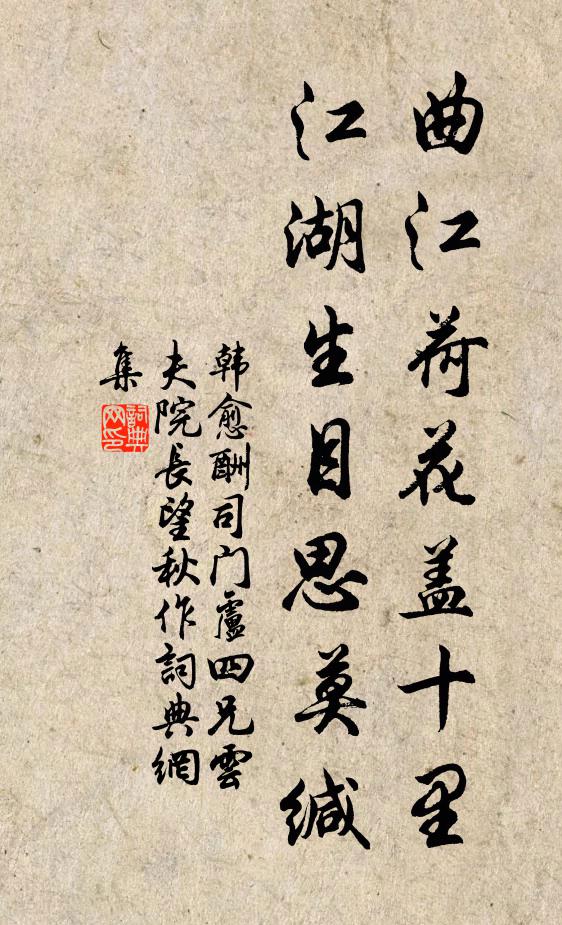 曲江荷花盖十里
江湖生目思莫缄
韩愈酬司门盧四兄雲
夫院長望秋作詞典網
集
詞典
网印